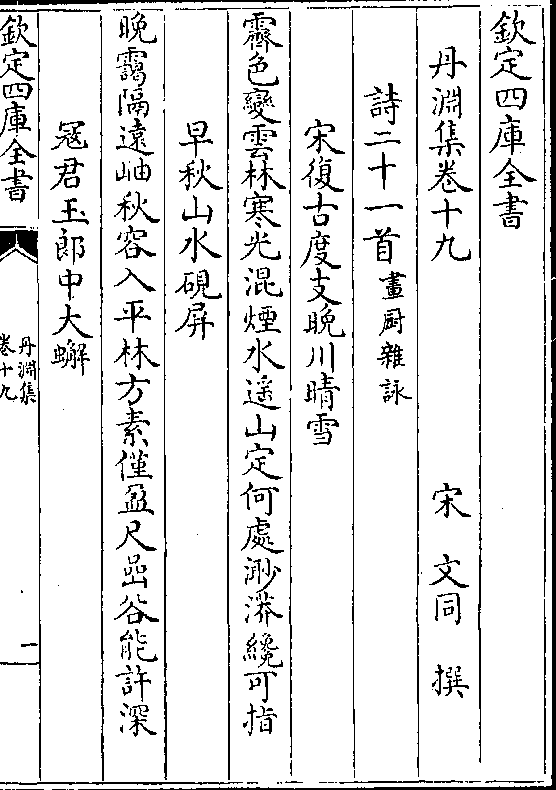 欽定四庫全書
丹淵集卷十九　宋　文同　撰
詩二十一首畫厨雜詠
宋復古度支晚川晴雪
霽色變雲林寒光混煙水遥山定何處渺漭纔可指
早秋山水硯屏
晚靄隔遠岫秋容入平林方素僅盈尺嵒谷能許深
冦君玉郎中大蠏
欽定四庫全書
丹淵集
卷十九
一